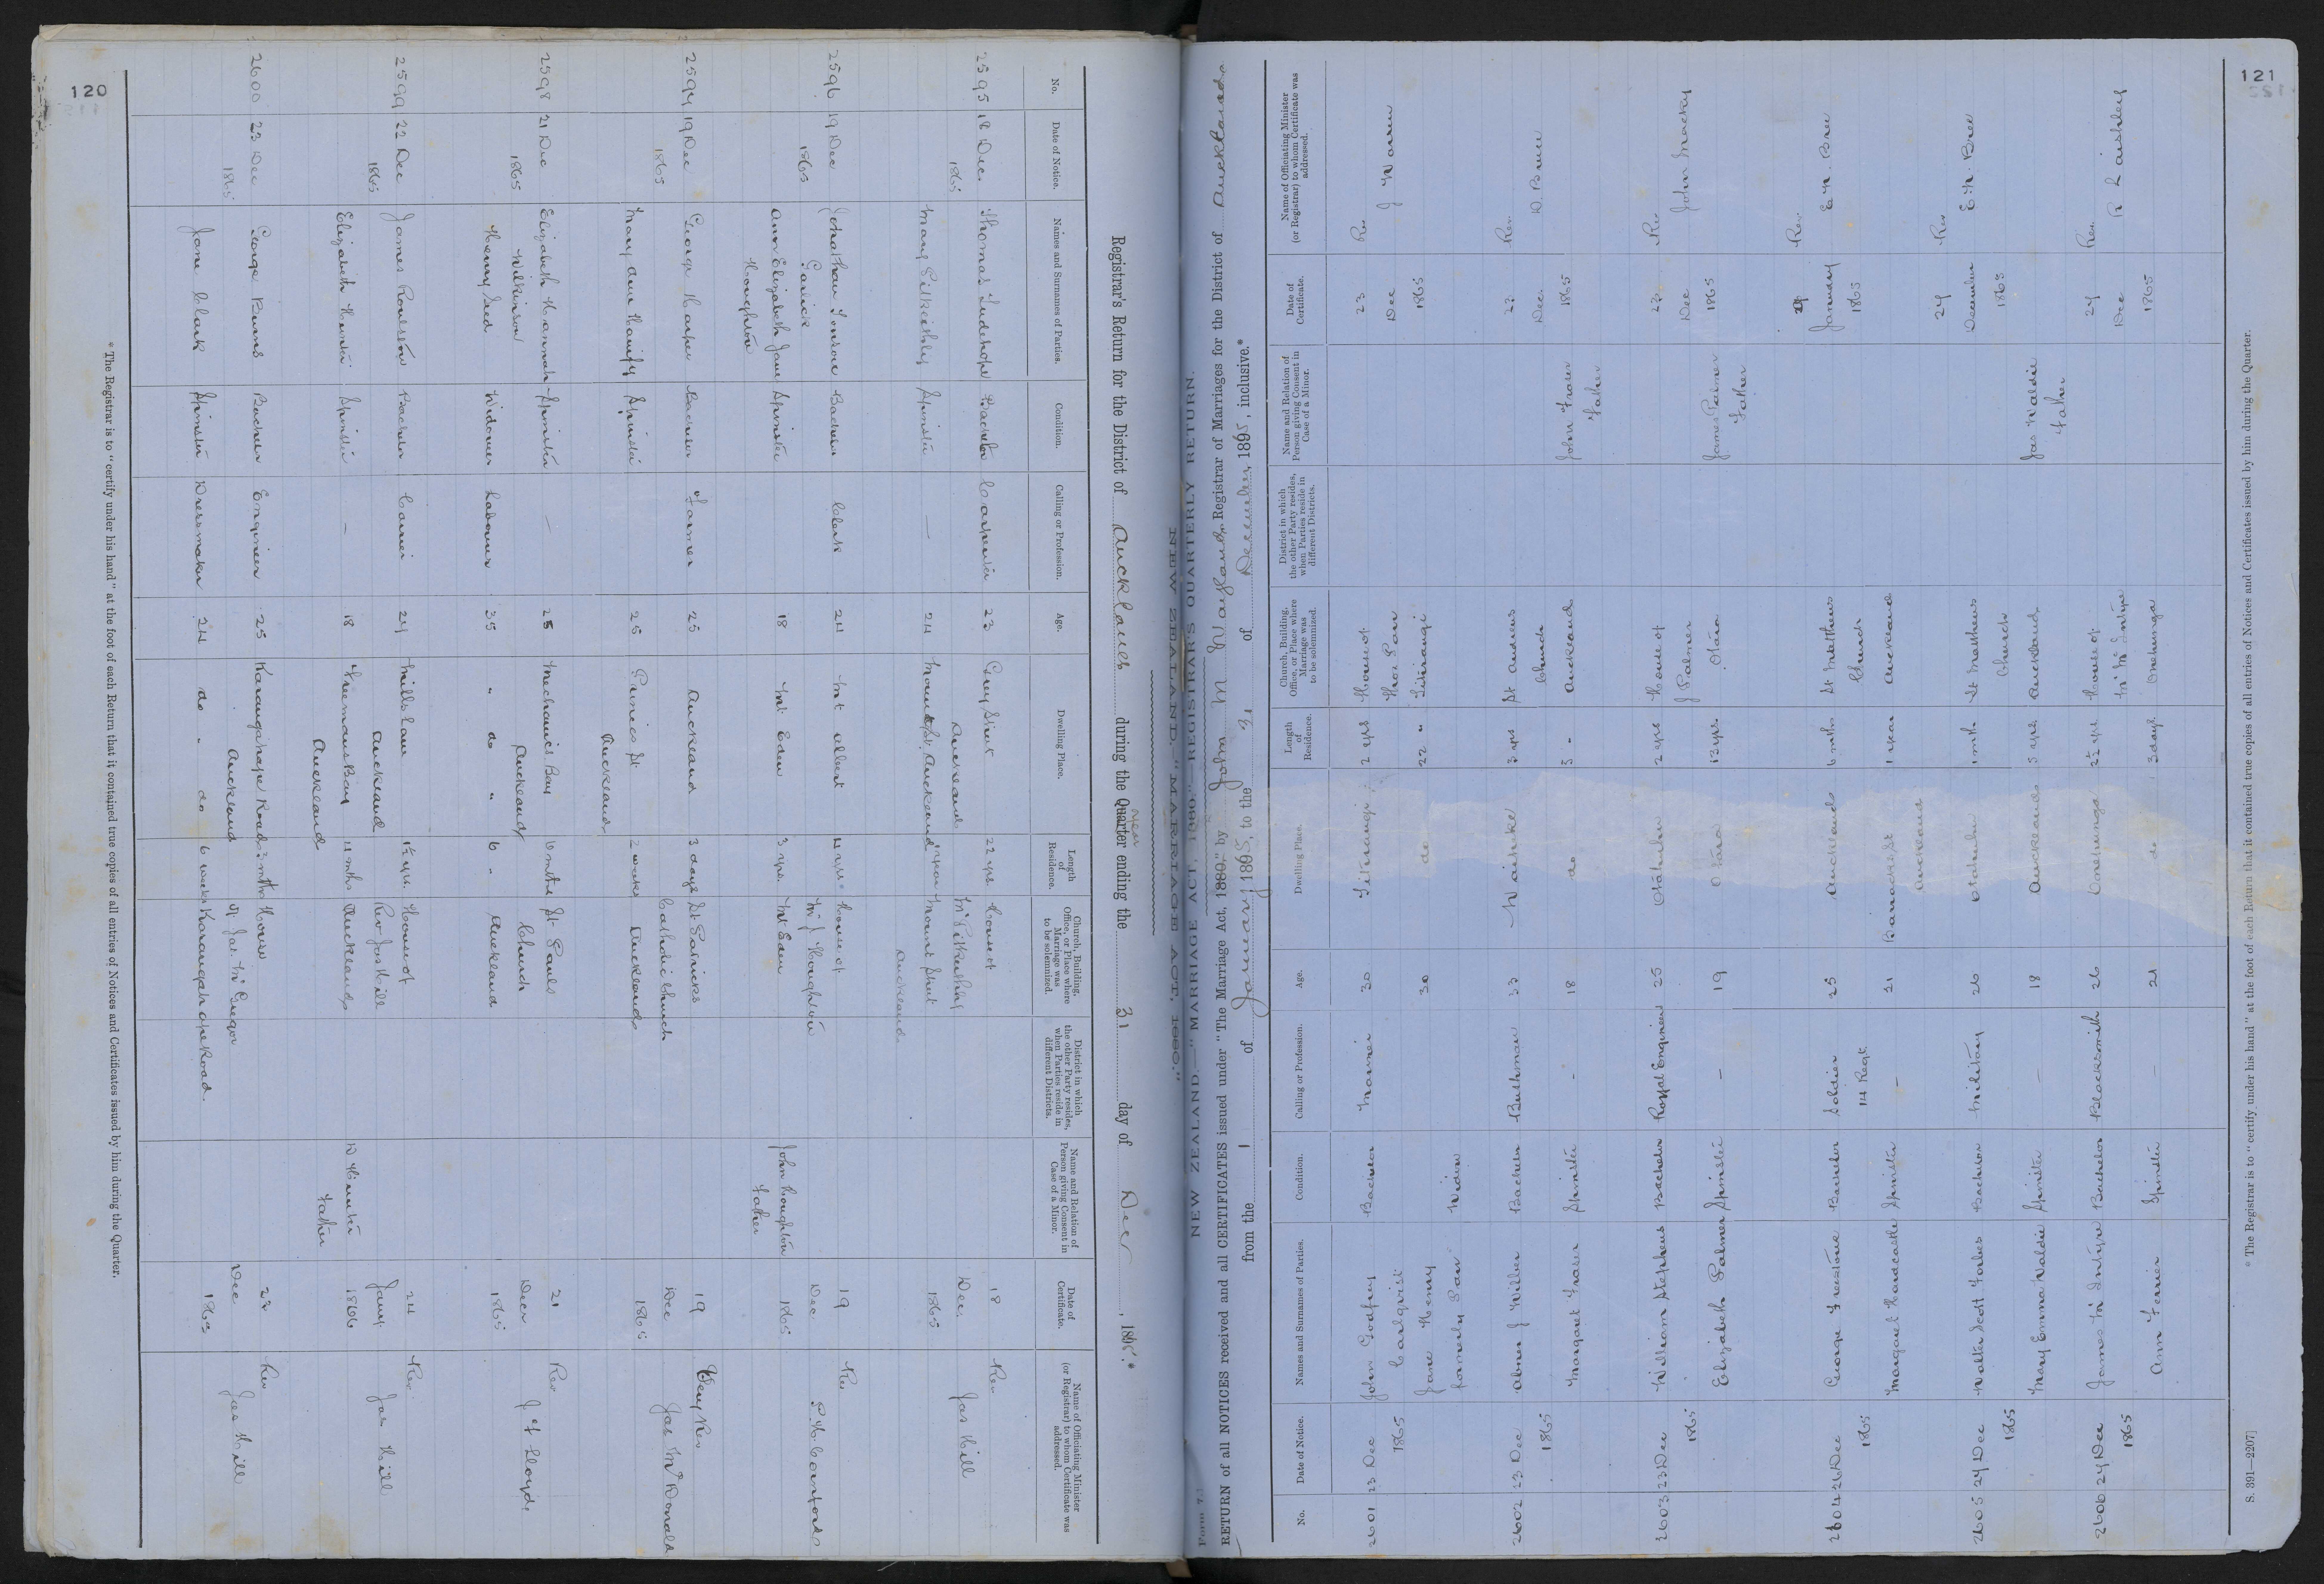 120
Registrar's Return for the District of Auckland during the Quarter year ending the 31 day of Decr, 1865.*
No.
Date of Notice.
Names and Surnames of Parties.
Condition.
Calling or Profession.
Age.
Dwelling Place.
Length of Residence.
Church, Building, Office, or Place where Marriage was to be solemnized.
District in which the other Party resides, when Parties reside in different Districts.
Name and Relation of Person giving Consent in Case of a Minor.
Date of Certificate.
Name of Officiating Minister (or Registrar) to whom Certificate was addressed.
2595 18 Dec. Thomas Ludehope Bachelor Carpenter 23 Grey Street 22 yrs House of 18 Rev
1865 Auckland Mr Dec. Jas Hill
Mary Spinster — 24 Mount St. Auckland Mount Street 1865
Auckland
2596 19 Dec Jonathan Bachelor Clerk 24 Mt Albert 4 yrs House of 19 Rev
1865 Garlick Mr J Houghton John Houghton Dec
Ann Elizabeth Jane Spinster 18 Mt Eden 3 yrs. Mt Eden Father 1865
Houghton
2597 19 Dec George Harper Bachelor Farmer 25 Auckland 3 days St Patricks 19 Very Rev
1865 Catholic Church Dec Jas McDonald
Mary Ann Spinster 25 Princes St 2 weeks Auckland 1865
Auckland
2598 21 Dec Elizabeth Hannah Spinster — 25 Mechanics Bay 6 mths St Pauls 21 Rev
1865 Wilkinson Auckland Church Decr J F Lloyd
Henry Seed Widower Labourer 35 " do " 6 " Auckland 1865
2599 22 Dec James Roulston Bachelor Carrier 24 Mills Lane 1½ yrs. House of 24 Rev
1865 Auckland Rev Jas Hill Jany. Jas Hill
Elizabeth Hunter Spinster — 18 Freemans Bay 11 mths Auckland D Hunter 1866
Auckland Father
2600 23 Dec George Burns Bachelor Engineer 25 Karangahape Road mths House 23 Rev
1865 Auckland of Jas. McGregor Dec Jas Hill
Jane Clark Spinster Dressmaker 24 do " do 6 weeks Karangahape Road. 1865
* The Registrar is to "certify under his hand" at the foot of each Return that it contained true copies of all entries of Notices and Certificates issued by him during the Quarter.
121
Form 7.]
NEW ZEALAND.—"MARRIAGE ACT, 1880."—REGISTRAR'S QUARTERLY RETURN.
RETURN of all NOTICES received and all CERTIFICATES issued under "The Marriage Act, 1880," by John M Wayland, Registrar of Marriages for the District of Auckland
from the 1 of January 1865, to the 31 of December 1865, inclusive.*
No.
Date of Notice.
Names and Surnames of Parties.
Condition.
Calling or Profession.
Age.
Dwelling Place.
Length of Residence.
Church, Building, Office, or Place where Marriage was to be solemnized.
District in which the other Party resides, when Parties reside in different Districts.
Name and Relation of Person giving Consent in Case of a Minor.
Date of Certificate.
Name of Officiating Minister (or Registrar) to whom Certificate was addressed.
2601 23 Dec John Godfrey Bachelor 30 Titirangi 2 yrs House of 23 Rev
1865 Carlqvist Dec J Warren
Jane Henry 30 do 22 " Titirangi 1865
formerly Widow
2602 23 Dec Abner J Wilber Bachelor Bushman 33 Waiheke 3 yrs St Andrews 23 Rev
1865 Church Dec. D. Bruce
Margaret Fraser Spinster – 18 do 3 " Auckland John Fraser 1865
Father
2603 23 Dec William Stephens Bachelor Royal Engineer 25 Otahuhu 2 yrs House of 23 Rev
1865 J Palmer Dec John Macky
Elizabeth Palmer Spinster – 19 Otara 13 yrs. Otara James Palmer 1865
Father
2604 26 Dec George Freestone Bachelor Soldier 25 Auckland 6 mths St Matthews Rev.
1865 14 Regt. Church January E N. Bree
Margaret Hardcastle Spinster – 21 Barrack St 1 year Auckland 1865
Auckland
2605 27 Dec Walter Scott Forbes Bachelor Military 26 Otahuhu 1 mth St Matthews 27 Rev
1865 Church December E N. Bree
Mary Emma Waldie Spinster – 18 Auckland 3 yrs Auckland Jas Waldie 1865
Father
2606 27 Dec James McIntyre Bachelor Blacksmith 26 Onehunga 2½ yrs House of 27 Rev.
1865 Mr McIntyre Dec R Laishley
Ann Ferrier Spinster – 21 do 3 days Onehunga 1865
* The Registrar is to "certify under his hand" at the foot of each Return that it contained true copies of all entries of Notices and Certificates issued by him during the Quarter.
S. 391—2207]